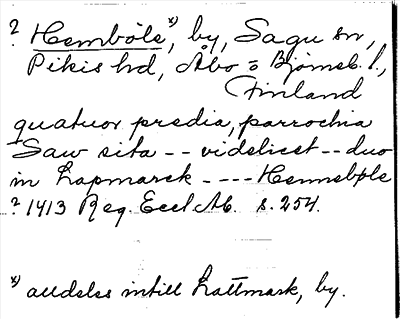 ? Hemböle x), by, Sagu sn,
Pikis hd, Åbo o Björneb. l.,
Finland
quatuor predia, parrochia
Saw sita -- videlicet -- duo
in Lapmarck ---- Hemelbple
? 1413 Reg. Eccl. Ab. s. 254.
x) alldeles intill Lättmark, by.